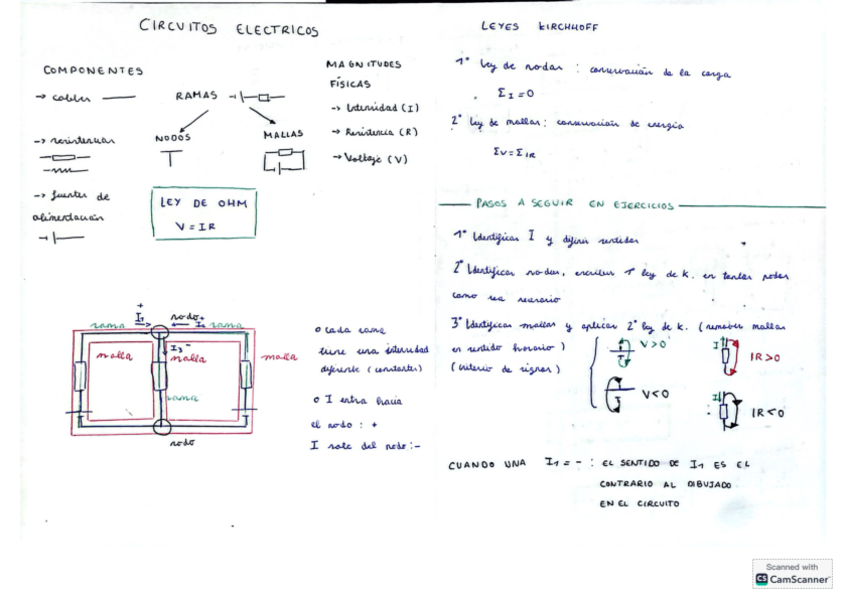 CIRCUITOS ELECTRICOS
COMPONENTES
→ cables
→ resistencias
→ fuentes de
alimentación
RAMAS
NODOS
MALLAS
MAGNITUDES
FÍSICAS
→ Intensidad (I)
→ Resistencia (R)
→ Voltaje (V)
LEY DE OHM
V = IR
+
I1
nodo+
I2
rama
rama
I3 -
malla
malla
malla
rama
nodo
o cada rama
tiene una intensidad
diferente (constantes)
o I entra hacia
el nodo : +
I sale del nodo : -
LEYES KIRCHHOFF
1ª ley de nodos : conservación de la carga
ΣI = 0
2ª ley de mallas : conservación de energía
ΣV = ΣIR
PASOS A SEGUIR EN EJERCICIOS
1º Identificar I y definir sentidos
2º Identificar nodos, escribir 1ª ley de K. en tantos nodos
como sea necesario
3º Identificar mallas y aplicar 2ª ley de K. (recorrer mallas
en sentido horario)
(criterio de signos)
V > 0
V < 0
I
IR > 0
I
IR < 0
CUANDO UNA I1 = - : EL SENTIDO DE I1 ES EL
CONTRARIO AL DIBUJADO
EN EL CIRCUITO
Scanned with
CS CamScanner